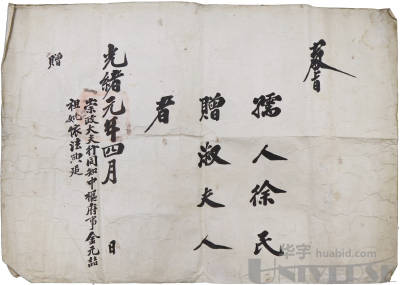 教旨
孺人徐氏
贈淑夫人
者
光緒元年四月 日
崇政大夫行同知中樞府事金元
祖妣依法典追
贈
华宇 huabid.com
UNIVERSE